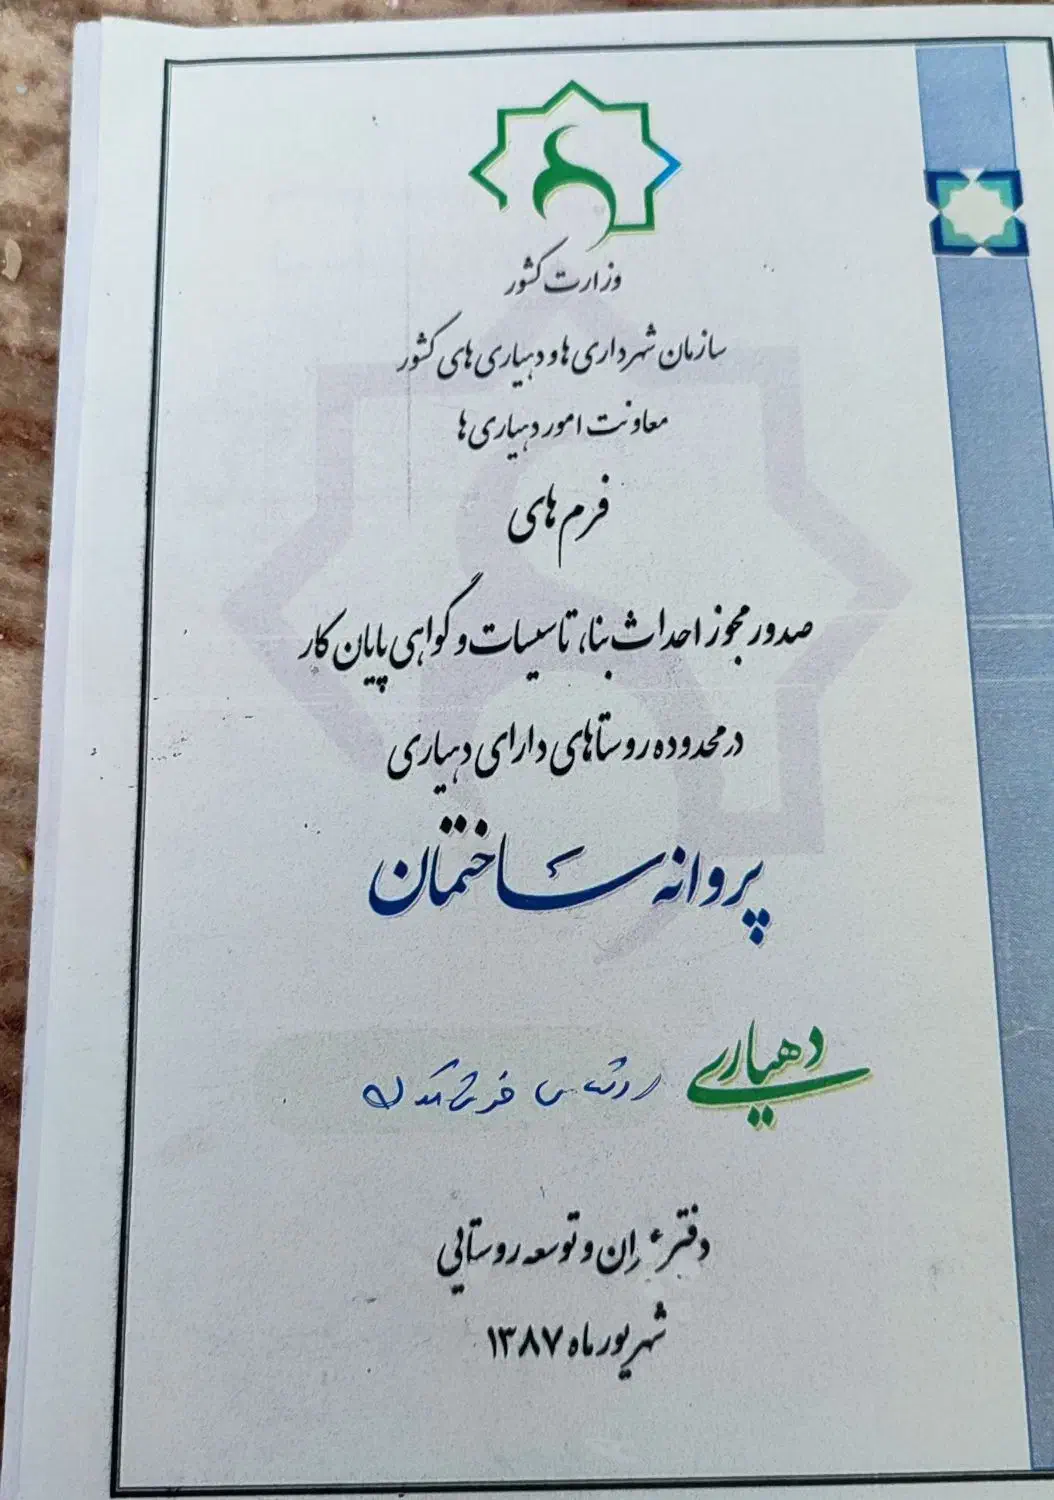 وزارت کشور
سازمان شهرداری ها و دهیاری های کشور
معاونت امور دهیاری ها
فرم های
صدور مجوز احداث بنا، تاسیسات و گواهی پایان کار
در محدوده روستاهای دارای دهیاری
پروانه ساختمان
دهیاری روستای
دفتر و توسعه روستایی
شهریور ماه ۱۳۸۷